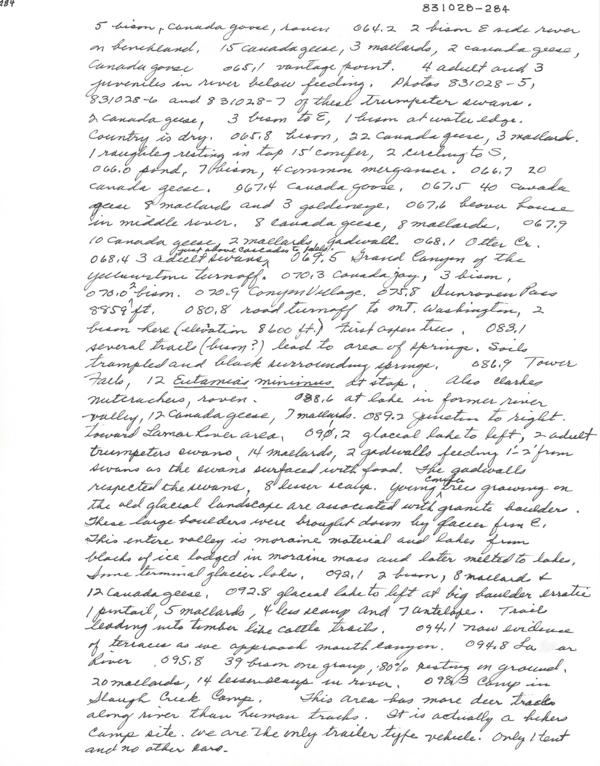 284
831028-284
5 bison, Canada goose, raven 064.2 2 bison E side river
on benchland. 15 Canada geese, 3 mallards, 2 Canada geese,
Canada goose 065.1 vantage point. 4 adult and 3
juveniles in river below feeding. Photos 831028-5,
831028-6 and 831028-7 of these trumpeter swans.
2 Canada geese, 3 bison to E, 1 bison at water edge.
Country is dry. 065.8 bison, 22 Canada geese, 3 mallards.
1 roughleg resting in top 15' conifer, 2 circling to S,
066.0 pond, 7 bison, 4 common merganser. 066.7 20
Canada geese. 067.4 Canada goose. 067.5 40 Canada
geese 8 mallards and 3 goldeneye. 067.6 beaver house
in middle river. 8 Canada geese, 8 mallards. 067.9
10 Canada geese, 2 mallards, gadwall. 068.1 Otter Cr.
just above Cascades to falls
068.4 3 adult swans, 069.5 Grand Canyon of the
Yellowstone turnoff. 070.3 Canada jay, 3 bison,
070.0 2 bison. 070.9 Canyon Village. 075.8 Dunraven Pass
8859 ft. 080.8 road turnoff to Mt. Washington, 2
bison here (elevation 8600 ft.) First aspen trees. 083.1
several trails (bison?) lead to area of springs. Soils
trampled and black surrounding springs. 086.9 Tower
Falls, 12 Eutamias minimus at stop. Also Clarkes
nutcrackers, raven. 088.6 at lake in former river
valley, 12 Canada geese, 7 mallards. 089.2 junction to right.
Toward Lamar River area. 090.2 glacial lake to left, 2 adult
trumpeters swans, 14 mallards, 2 gadwalls feeding 1-2' from
swans as the swans surfaced with food. The gadwalls
respected the swans, 8 lesser scaup. Young conifer trees growing on
the old glacial landscape are associated with granite boulders.
These large boulders were brought down by glacier from E.
This entire valley is moraine material and lakes from
blocks of ice lodged in moraine mass and later melted to lakes.
Some terminal glacier lakes. 092.1 2 bison, 8 mallard &
12 Canada geese. 092.8 glacial lake to left at big boulder erratic
1 pintail, 5 mallards, 4 les scaup and 7 antelope. Trails
leading into timber like cattle trails. 094.1 now evidence
of terraces as we approach mouth canyon. 094.8 La ar
River 095.8 39 bison one group, 80% resting on ground.
20 mallards, 14 lesser scaup in river. 098.3 Camp in
Slough Creek Camp. This area has more deer tracks
along river than human tracks. It is actually a hikers
camp site. We are the only trailer type vehicle. Only 1 tent
and no other cars.